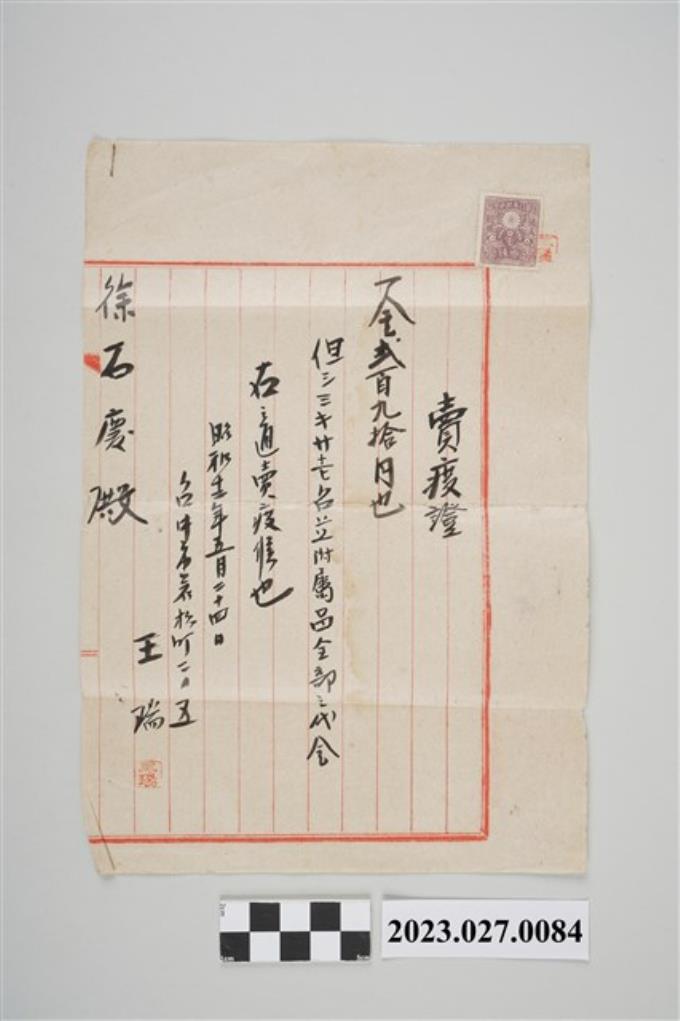 賣渡證
一金貳百九拾円也
但シミシン廿壱台並附屬品全部之代金
右之通賣渡候也
昭和十二年五月二十四日
台中市若松町二ノ五
王瑞
徐石慶殿
2023.027.0084